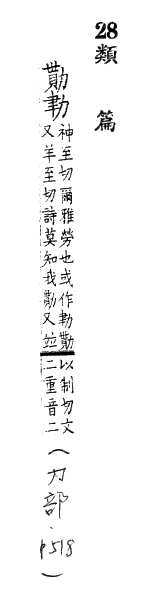 28 類篇
勩勚
神至切爾雅勞也或作勚勩
又羊至切詩莫知我勩又並
以制切文
二重音二
(力部·p518)